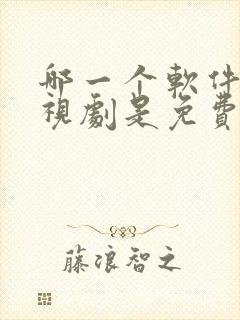 哪一个軟件
視劇是免費
藤浪智之